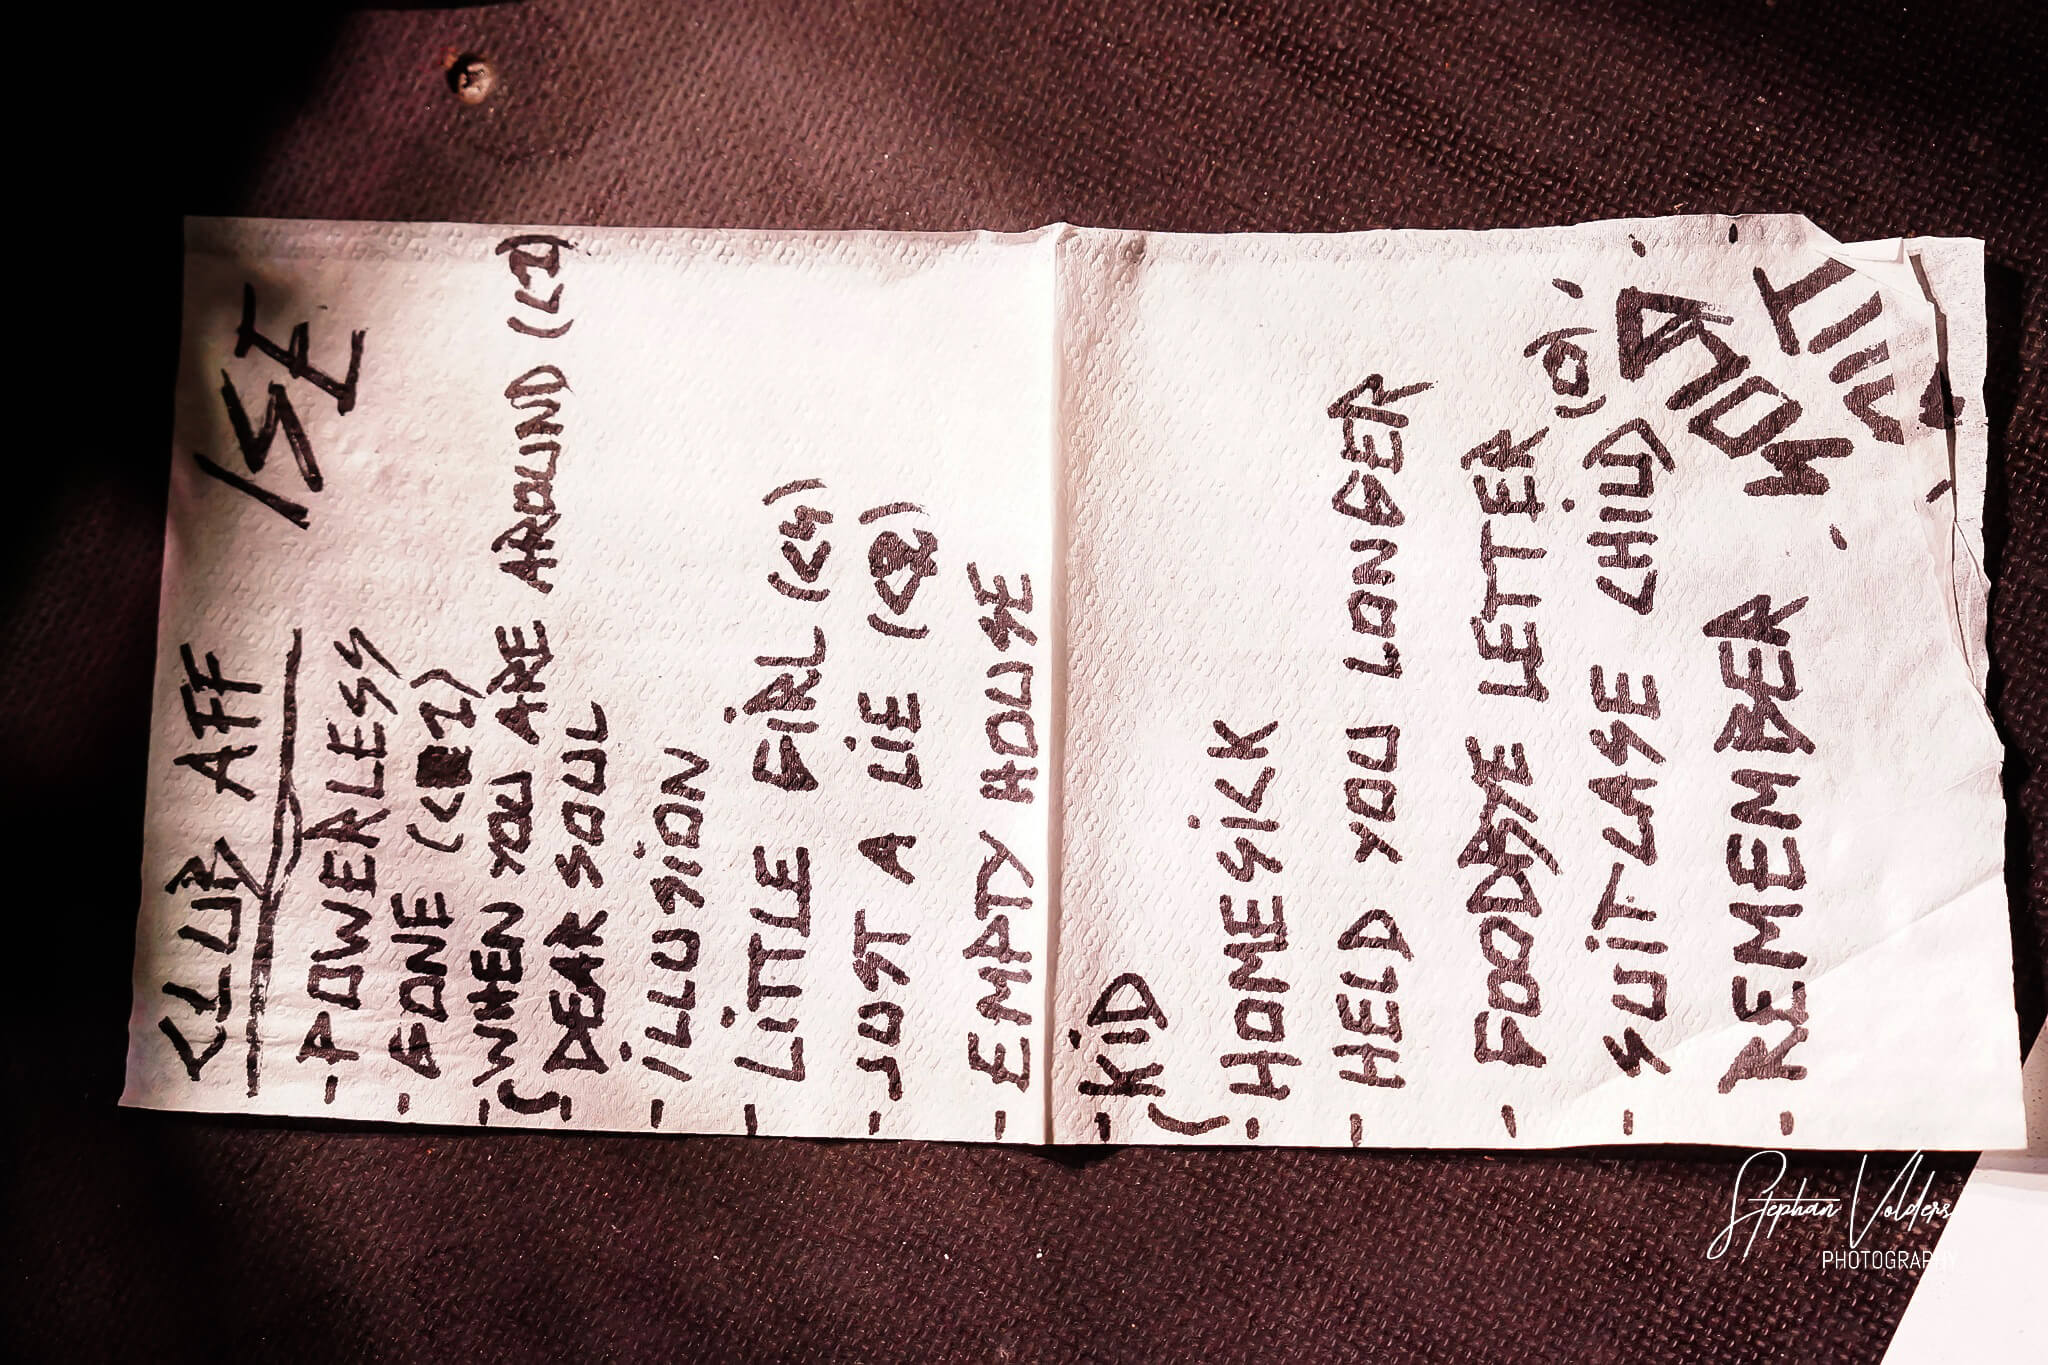 CLUB AFF
- POWERLESS
- GONE
- WHEN YOU ARE AROUND (C2)
- DEAR SOUL
- ILLUSION
- LITTLE GIRL (C4)
- JUST A LIE
- EMPTY HOUSE
- KID
- HOMESICK
- HELD YOU LONGER
- GOODBYE LETTER (0)
- SUITCASE (CHILD)
- REMEMBER
Stephan Volders
PHOTOGRAPHY